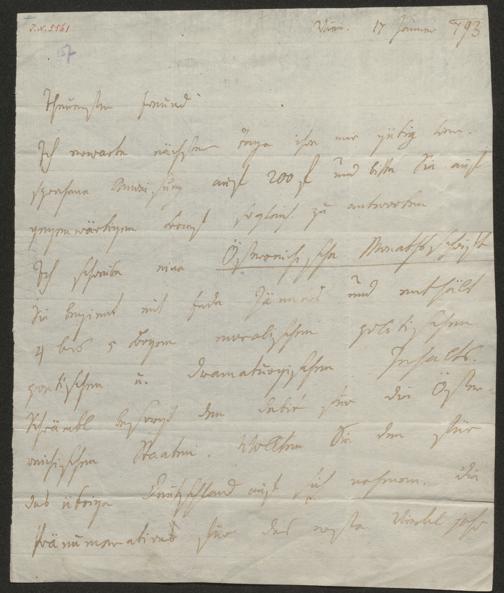 I.N. 5561
Wien. 17 Jänner 793
Theuerster Freund
Ich erwarte nächster Tage ihre mir gütig ver-
sprochene Anweisung auf 200 f und bitte Sie auf
gegenwärtigen Brief sogleich zu antworten
Ich schreibe eine Österreichische Monathsschrift
Sie beginnt mit Ende Jänners und enthält
4 bis 5 Bogen moralischen politischen
poetischen u. dramaturgischen Inhalts.
Schrämbl besorgt den Debit für die Öster-
reichischen Staaten. Wollten Sie den für
das übrige Deutschland auf sich nehmen. Die
Pränumeration für das erste Viertel Jahr